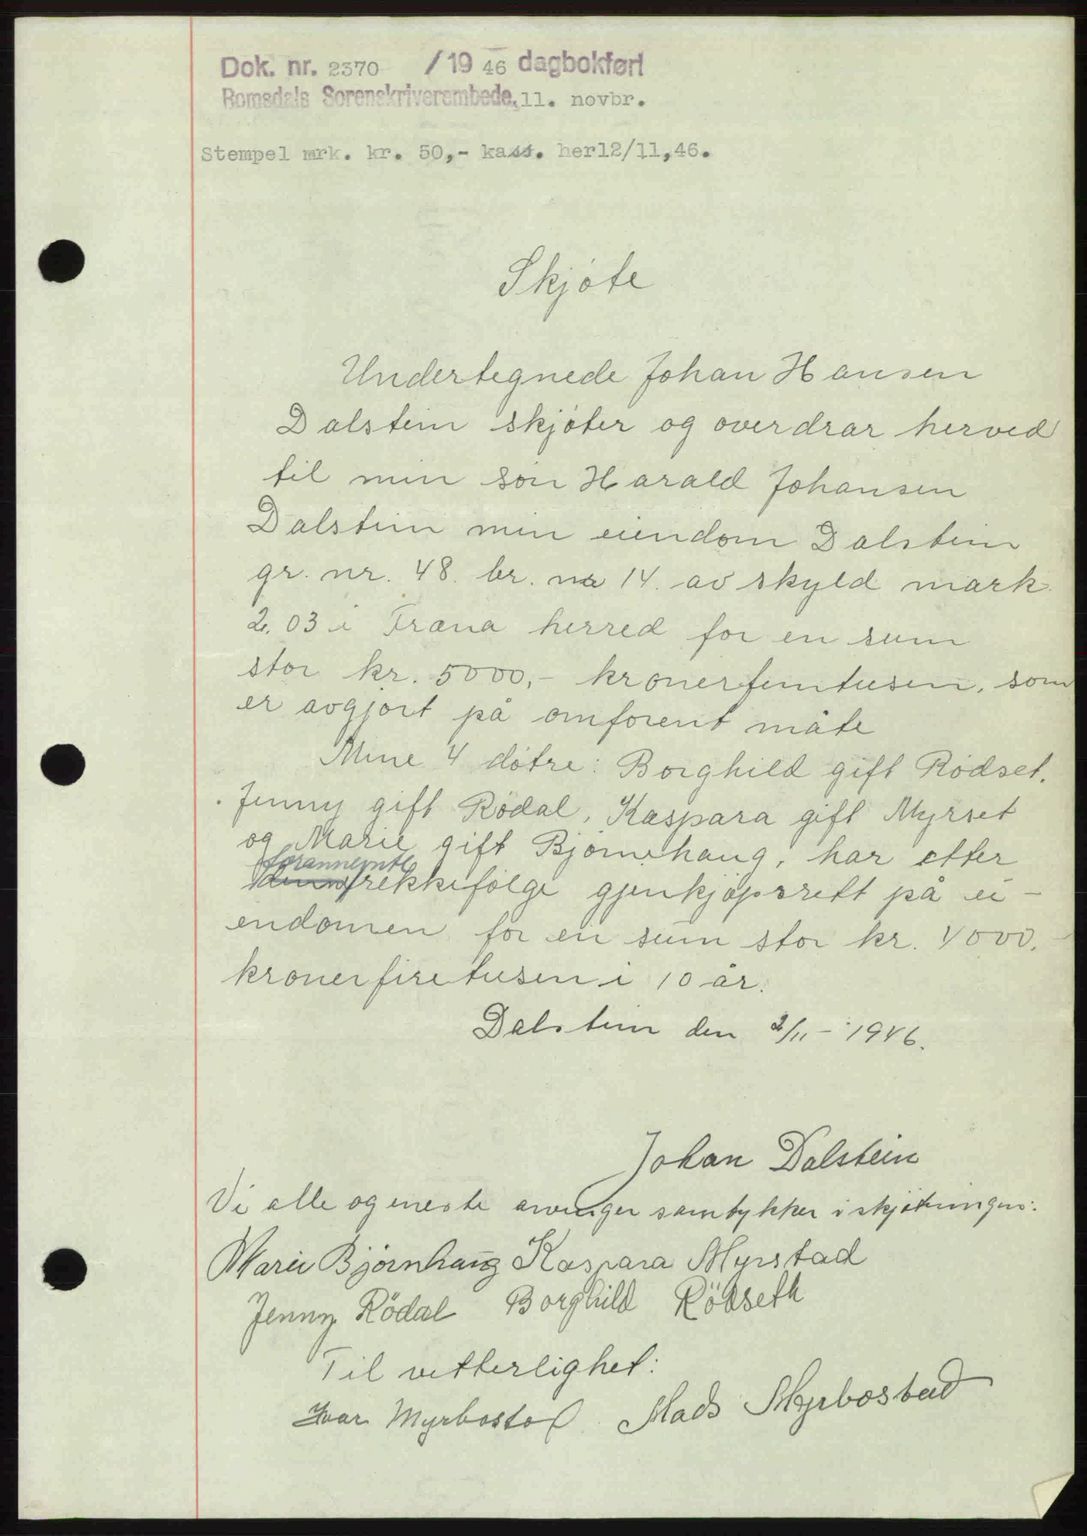 Dok. nr. 2370 / 19 46 dagbokført
Romsdals Sorenskriverembede, 11. novbr.
Stempel mrk. kr. 50,- kass. her12/11,46.
Skjøte
Undertegnede Johan Hansen
Dalstein skjøter og overdrar herved
til min søn Harald Johansen
Dalstein min eiendom Dalstein
gr. nr. 48. br. nr 14. av skyld mark
2.03 i Fræna herred for en sum
stor kr. 5000,- kronerfemtusen, som
er avgjort på omforent måte
Mine 4 døtre: Borghild gift Rødset.
Jenny gift Rødal, Kaspara gift Myrset
og Marie gift Bjørnehaug, har etter
forannevnte
rekkefølge gjenkjøpsrett på ei-
endomen for en sum stor kr. 4000,-
kronerfiretusen i 10 år.
Dalstein den 2/11 - 1946.
Johan Dalstein
Vi alle og eneste arvinger samtykker i skjøtningen:
Marie Bjørnhaug Kaspara Myrstad
Jenny Rödal Borghild Rödseth
Til vitterlighet:
Ivar Myrbostad Mads Myrbostad